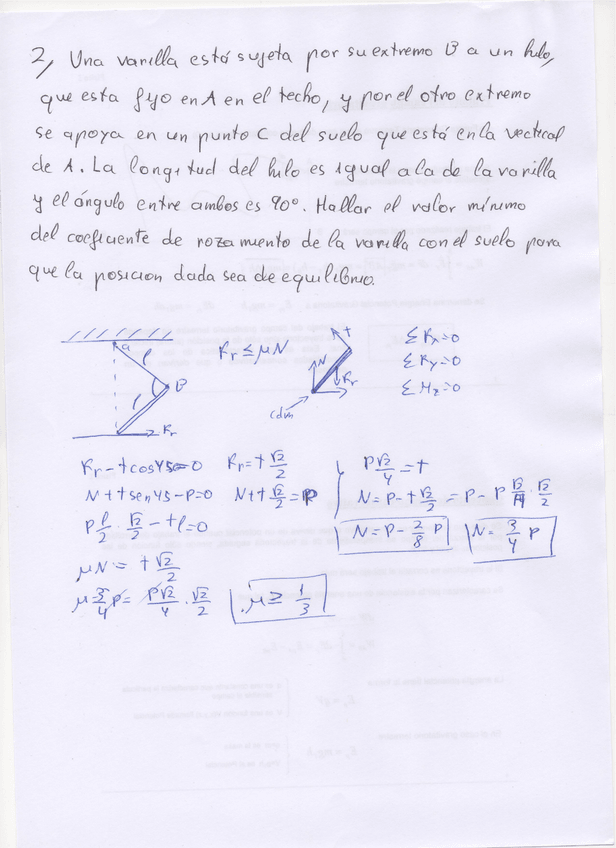 2, Una varilla está sujeta por su extremo B a un hilo,
que esta fijo en A en el techo, y por el otro extremo
se apoya en un punto C del suelo que está en la vertical
de A. La longitud del hilo es igual a la de la varilla
y el ángulo entre ambos es 90°. Hallar el valor mínimo
del coeficiente de rozamiento de la varilla con el suelo para
que la posicion dada sea de equilibrio.
a l B l Fr
Fr ≤ μN
t N Fr cdm
ΣFx=0
ΣFy=0
ΣMz=0
Fr - t cos45=0 Fr = t √2/2
N + t sen45 - P=0 N + t √2/2 = P
P l/2 · √2/2 - t l = 0
P√2/4 = t
N = P - t √2/2 = P - P √2/4 · √2/2
N = P - 2/8 P N = 3/4 P
μN = t √2/2
μ 3/4 P = P√2/4 · √2/2 μ ≥ 1/3